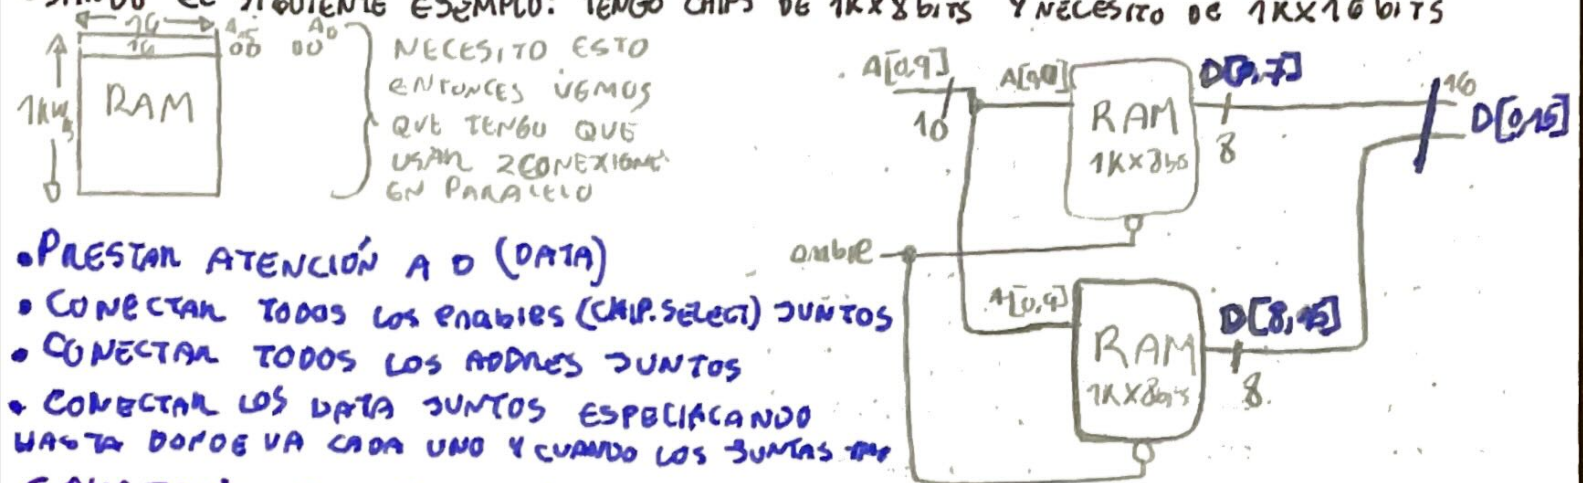 SIGUIENTE EJEMPLO: TENGO CHIPS DE 1KX8bITS Y NECESITO DE 1KX16 bITS
16
16
RAM
NECESITO ESTO
ENTONCES VEMOS
QUE TENGO QUE
USAR 2 CONEXIONES
EN PARALELO
• PRESTAR ATENCIÓN A D (DATA)
• CONECTAR TODOS LOS enables (CHIP.SELECT) JUNTOS
• CONECTAR TODOS LOS ADDRES JUNTOS
• CONECTAR LOS DATA JUNTOS
HASTA DONDE VA CADA UNO Y CUANDO LOS JUNTAS
A[0,9]
10
RAM
D[0,7]
8
16
D[0,15]
A[0,9]
RAM
1KX8bits
D[8,15]
8